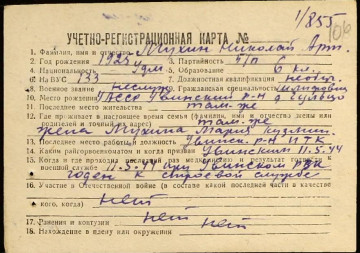 1/855
106
УЧЕТНО-РЕГИСТРАЦИОННАЯ КАРТА №
1. Фамилия, имя и отчество Мухин Николай Арт.
2. Год рождения 1925 3. Партийность б/п
4. Национальность удм. 5. Образование 6 кл.
6. № ВУС 133 7. Должностная квалификация необуч.
8. Военное звание неслуж. 9. Гражданская специальность
10. Место рождения УАССР Увинский р-н д
11. Последнее место жительства там-же
12. Где проживает в настоящее время семья (фамилия, имя и отчество жены или
родителей и точный их адрес) там-же
жена Мухина Мария
13. Последнее место работы и должность Увинск. р-н
14. Каким райгорвоенкоматом и когда призван Увинским 11.5.44
15. Когда и где проходил последний раз медкомиссию и результат годности к
военной службе 11.5.44 при Увинском РВК
годен к строевой службе
16. Участие в Отечественной войне (в составе какой последней части в качестве
кого, когда) нет
17. Ранения и контузии нет
18. Нахождение в плену или окружении нет